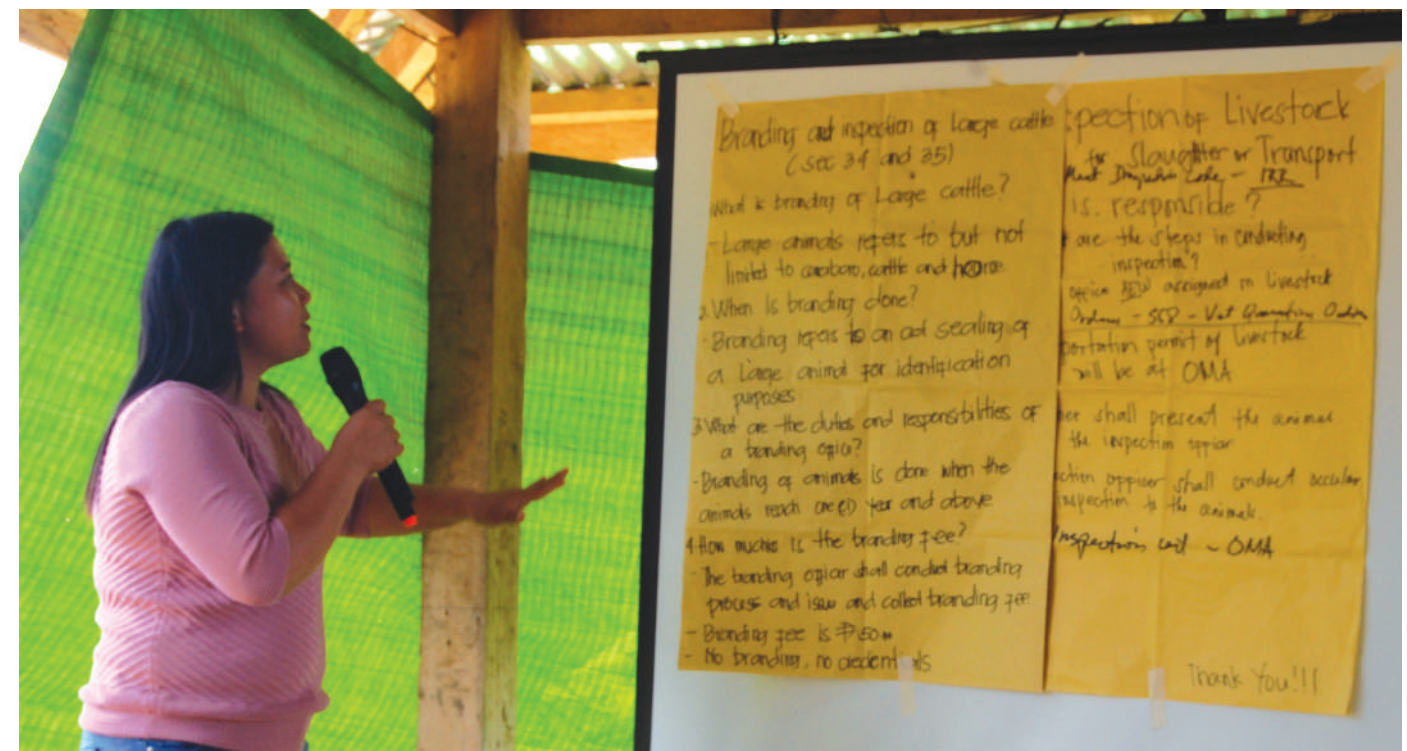 Branding and inspection of Large cattle
(sec 34 and 35)
What is branding of Large cattle?
- Large animals refers to but not
limited to carabaro, cattle and horse
2. When Is branding done?
- Branding refers to an act sealing of
a Large animal for identification
purposes
3. What are the duties and responsibilities of
a branding officer?
- Branding of animals is done when the
animals reach one(1) year and above
4. How much is the branding fee?
- The branding officer shall conduct branding
process and issue and collect branding fee
- Branding fee is ₱50
- No branding, no credentials
pection of Livestock
for Slaughter or Transport
Meat Code - IRR
is responsible?
are the steps in conducting
inspection?
office assigned in Livestock
- Vet Quarantine
portation permit of livestock
will be at OMA
shall present the animal
the inspection officer
ction officer shall conduct occular
inspection to the animals.
Inspection - OMA
Thank You!!!